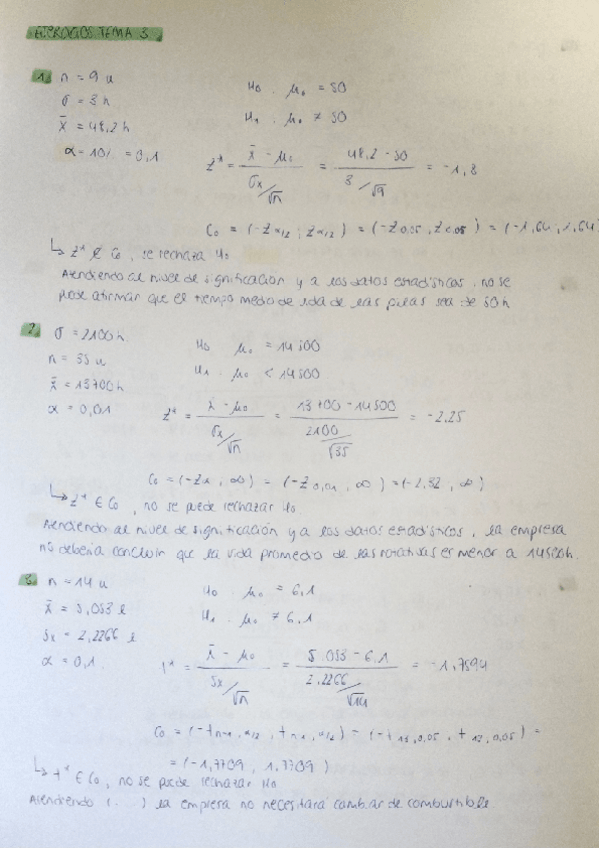 EJERCICIOS TEMA 3
1. n = 9 u H0. μ0 = 50
σ = 3 h H1. μ0 ≠ 50
x̄ = 48,2 h
α = 10% = 0,1 z* = (x̄ - μ0) / (σx/√n) = (48,2 - 50) / (3/√9) = -1,8
C0 = (-zα/2 ; zα/2) = (-z0,05, z0,05) = (-1,64, 1,64)
↳ z* ∉ C0, se rechaza H0
Atendiendo al nivel de significación y a los datos estadísticos, no se
puede afirmar que el tiempo medio de vida de las pilas sea de 50h
2. σ = 2100 h H0 μ0 = 14500
n = 35 u H1. μ0 < 14500
x̄ = 13700h
α = 0,01 z* = (x̄ - μ0) / (σx/√n) = (13700 - 14500) / (2100/√35) = -2,25
C0 = (-zα, ∞) = (-z0,01, ∞) = (-2,32, ∞)
↳ z* ∈ C0, no se puede rechazar H0
Atendiendo al nivel de significación y a los datos estadísticos, la empresa
no debería concluir que la vida promedio de las rotativas es menor a 14500h.
3. n = 14 u H0 μ0 = 6,1
x̄ = 5,053 l H1. μ0 ≠ 6,1
sx = 2,2266 l
α = 0,1. t* = (x̄ - μ0) / (sx/√n) = (5,053 - 6,1) / (2,2266/√14) = -1,7594
C0 = (-tn-1, α/2, tn-1, α/2) = (-t13, 0,05, t13, 0,05) =
= (-1,7709, 1,7709)
↳ t* ∈ C0, no se puede rechazar H0
Atendiendo (...) la empresa no necesitará cambiar de combustible.